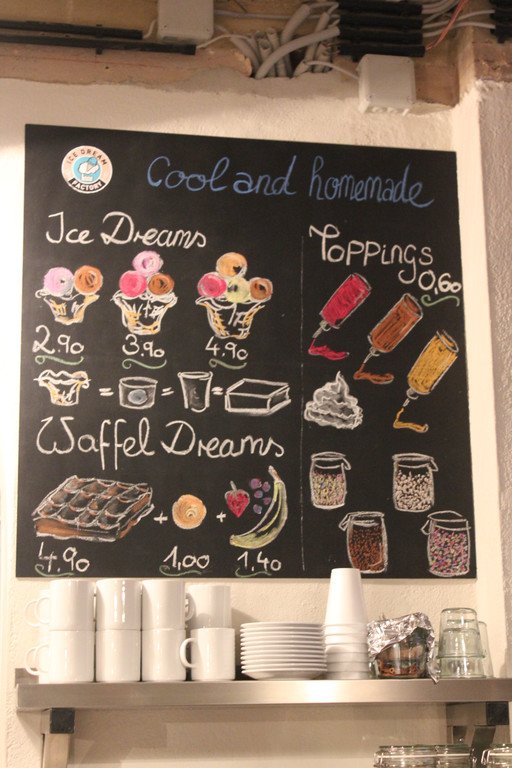 ICE DREAM
FACTORY
Cool and homemade
Ice Dreams
2.90
3.90
4.90
= = =
Waffel Dreams
+ +
4.90
1,00
1.40
Toppings
0,60